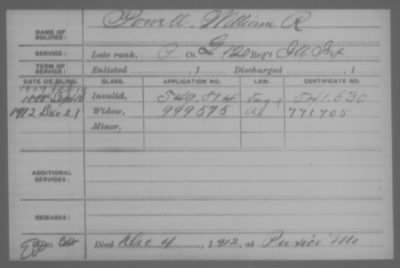 NAME OF SOLDIER: Powell, William R
SERVICE: Late rank, P Co. G, 120 Reg't Ill Inf
TERM OF SERVICE: Enlisted , 1 Discharged , 1
DATE OF FILING. CLASS. APPLICATION NO. LAW. CERTIFICATE NO.
Invalid, 549.814 541.630
1912 Dec 28 Widow, 999575 771705
Minor,
ADDITIONAL SERVICES:
REMARKS:
Died Dec 4, 1912, at Mo